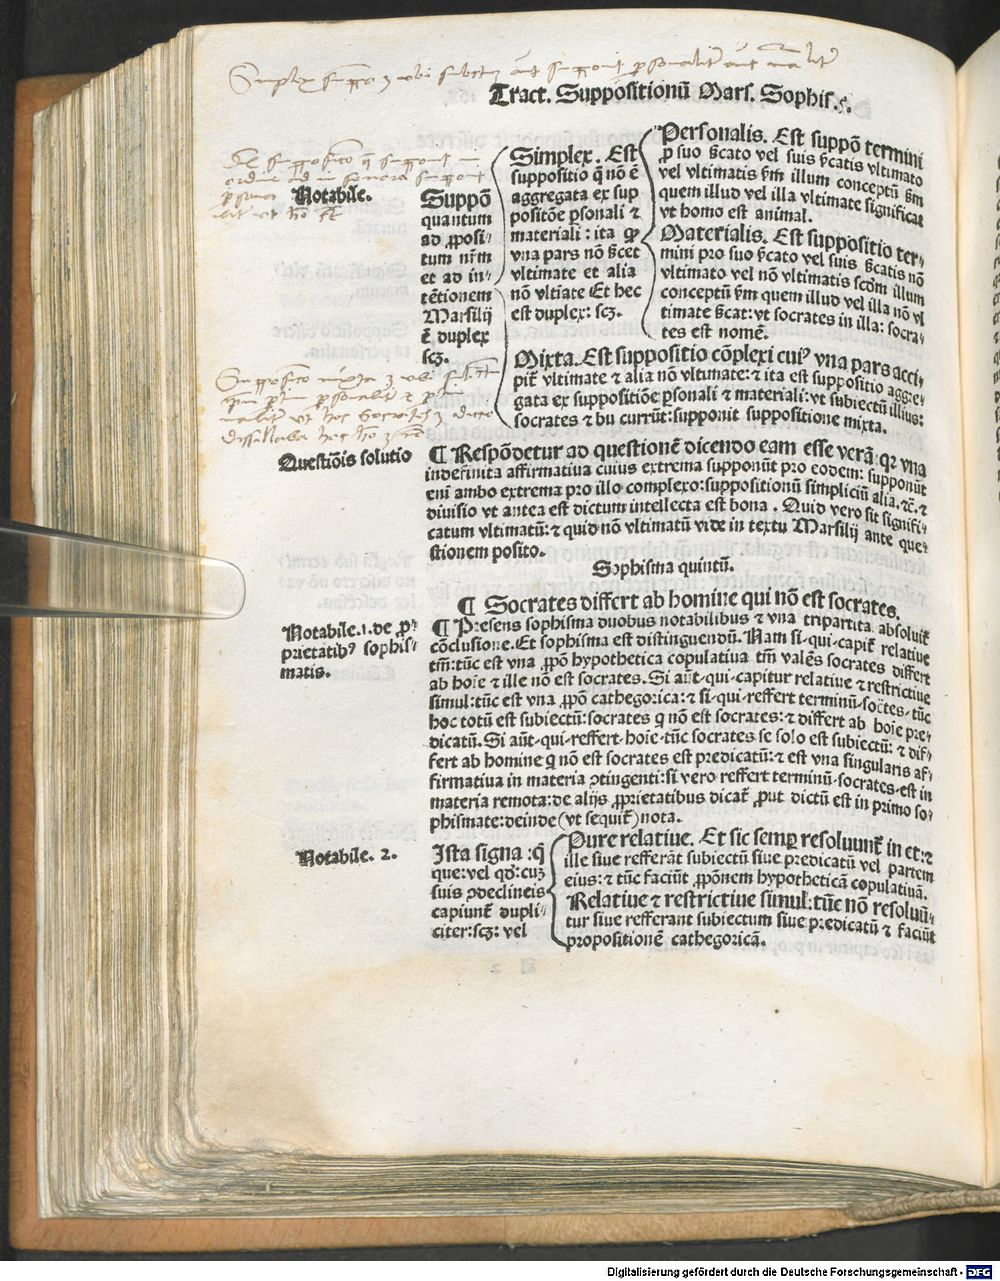 Tract. Suppositionũ Mars. Sophis. 5.
Notabile.
Suppõ
quantum
ad ꝓposi⸗
tum nr̃m
et ad in⸗
tẽtionem
Marsilij
ẽ duplex
scꝫ.
Simplex. Est
suppositio q̃ nõ ẽ
aggregata ex sup
positõe ꝑsonali ⁊
materiali: ita ꝙ
vna pars nõ s̃cet
vltimate et alia
nõ vltiate Et hec
est duplex: scꝫ.
Personalis. Est suppõ termini
ꝓ suo s̃cato vel suis s̃catis vltimato
vel vltimatis s̃m illum conceptũ s̃m
quem illud vel illa vltimate significat
vt homo est animal.
Materialis. Est suppositio ter⸗
mini pro suo s̃cato vel suis s̃catis nõ
vltimato vel nõ vltimatis scdm illum
conceptũ s̃m quem illud vel illa nõ vl
timate s̃cat: vt socrates in illa: socra⸗
tes est nomẽ.
Mixta. Est suppositio cõplexi cuiꝰ vna pars acci⸗
pit̃ vltimate ⁊ alia nõ vltimate: ⁊ ita est suppositio aggre⸗
gata ex suppositiõe ꝑsonali ⁊ materiali: vt subiectũ illius:
socrates ⁊ bu currũt: supponit suppositione mixta.
Questiõis solutio
¶ Respõdetur ad questionẽ dicendo eam esse verã: qꝛ vna
indefinita affirmatiua cuius extrema supponũt pro eodem: supponũt
eni ambo extrema pro illo complexo: suppositionũ simpliciũ alia. ⁊c̃. ⁊
diuisio vt antea est dictum intellecta est bona. Quid vero sit signifi⸗
catum vltimatũ: ⁊ quid nõ vltimatũ vide in textu Marsilij ante que⸗
stionem posito.
Sophisma quintũ.
¶ Socrates differt ab homine qui nõ est socrates.
Notabile. 1. de ꝓ⸗
prietatibꝰ sophis⸗
matis.
¶ Presens sophisma duobus notabilibus ⁊ vna tripartita absoluit̃
cõclusione. Et sophisma est distinguendũ. Nam si⸗qui⸗capit̃ relatiue
tm̃: tũc est vna ꝓpõ hypothetica copulatiua tm̃ valẽs socrates differt
ab hoie ⁊ ille nõ est socrates. Si aũt⸗qui⸗capitur relatiue ⁊ restrictiue
simul: tũc est vna ꝓpõ cathegorica: ⁊ si⸗qui⸗reffert terminũ⸗socr̃tes⸗tũc
hoc totũ est subiectũ: socrates q̃ nõ est socrates: ⁊ differt ab hoie pre⸗
dicatũ. Si aũt⸗qui⸗reffert⸗hoie⸗tũc socrates se solo est subiectũ: ⁊ dif⸗
fert ab homine q̃ nõ est socrates est predicatũ: ⁊ est vna singularis af⸗
firmatiua in materia ꝯtingenti: si vero reffert terminũ⸗socrates⸗est in
materia remota: de alijs ꝓprietatibus dicat̃ ꝓut dictũ est in primo so⸗
phismate: deinde (vt sequit̃) nota.
Notabile. 2.
Ista signa: q̃
que: vel qđ: cuꝫ
suis ꝯdeclineis
capiunt̃ dupli⸗
citer: scꝫ: vel
Pure relatiue. Et sic semꝑ resoluunt̃ in et: ⁊
ille siue refferãt subiectũ siue predicatũ vel partem
eius: ⁊ tũc faciũt ꝓpõnem hypotheticã copulatiuã.
Relatiue ⁊ restrictiue simul: tũc nõ resoluũ⸗
tur siue refferant subiectum siue predicatũ ⁊ faciũt
propositionẽ cathegoricã.
Digitalisierung gefördert durch die Deutsche Forschungsgemeinschaft - DFG